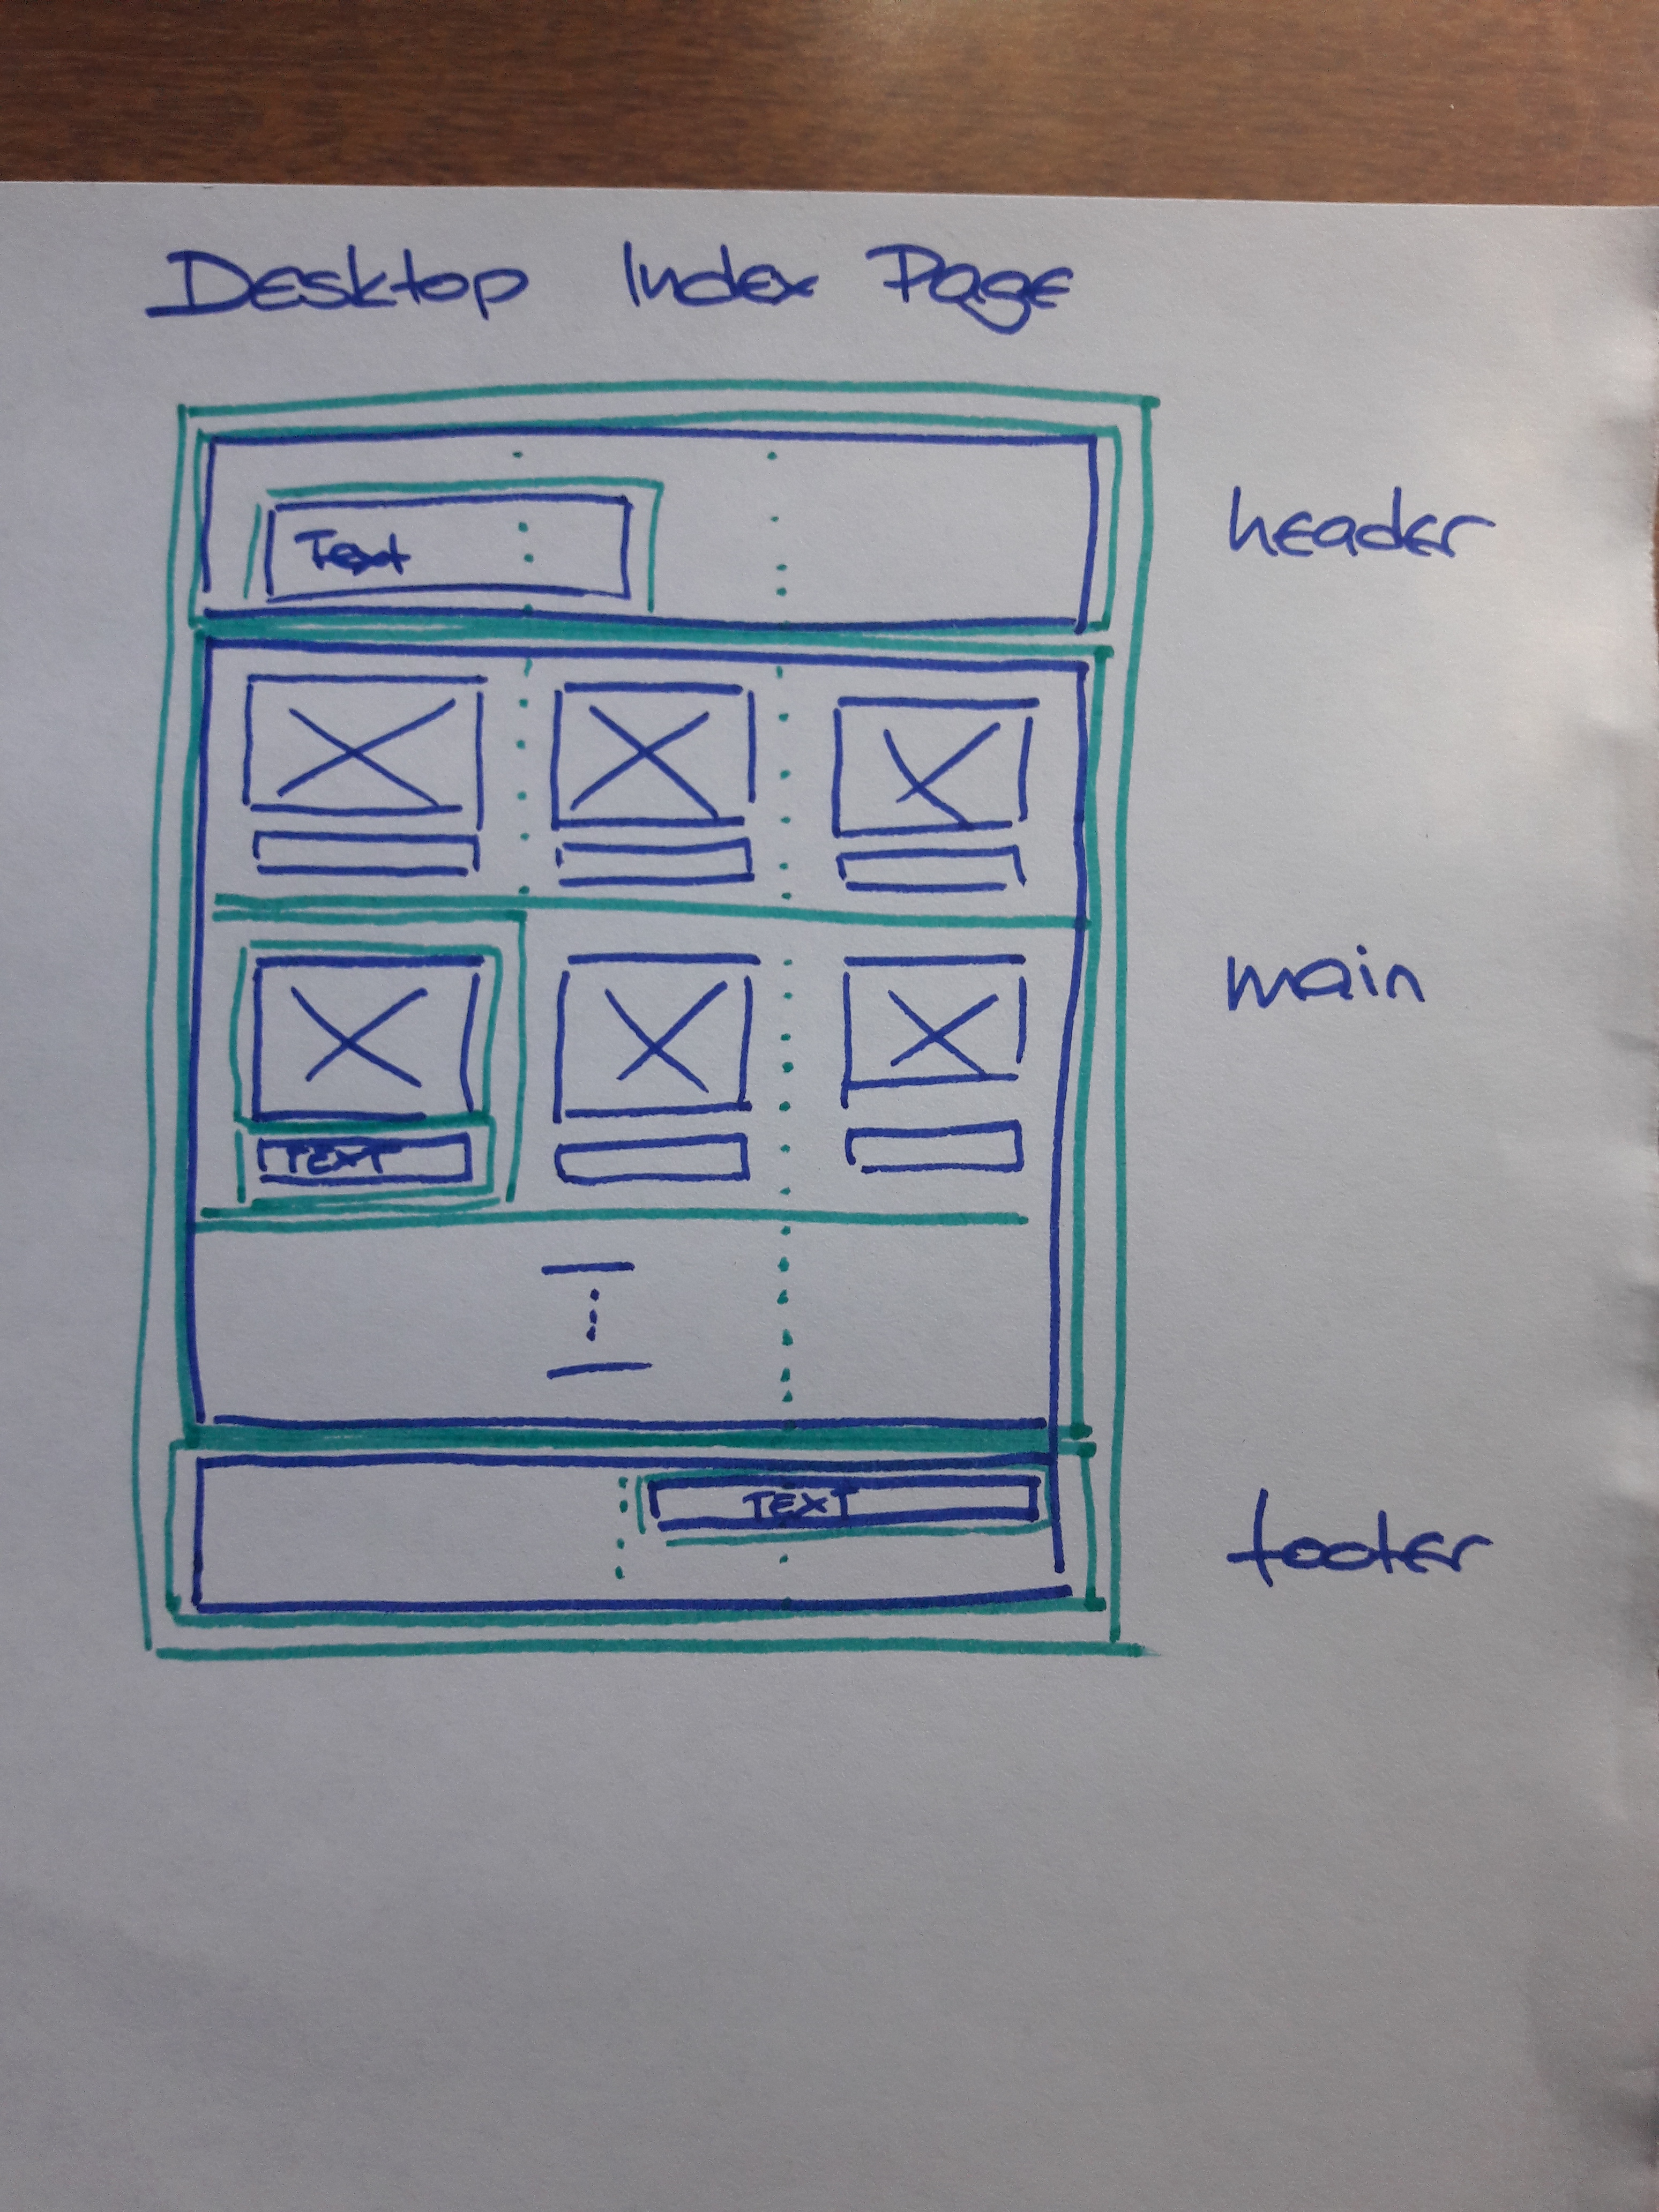 Desktop Index Page
Text
header
main
TEXT
TEXT
footer